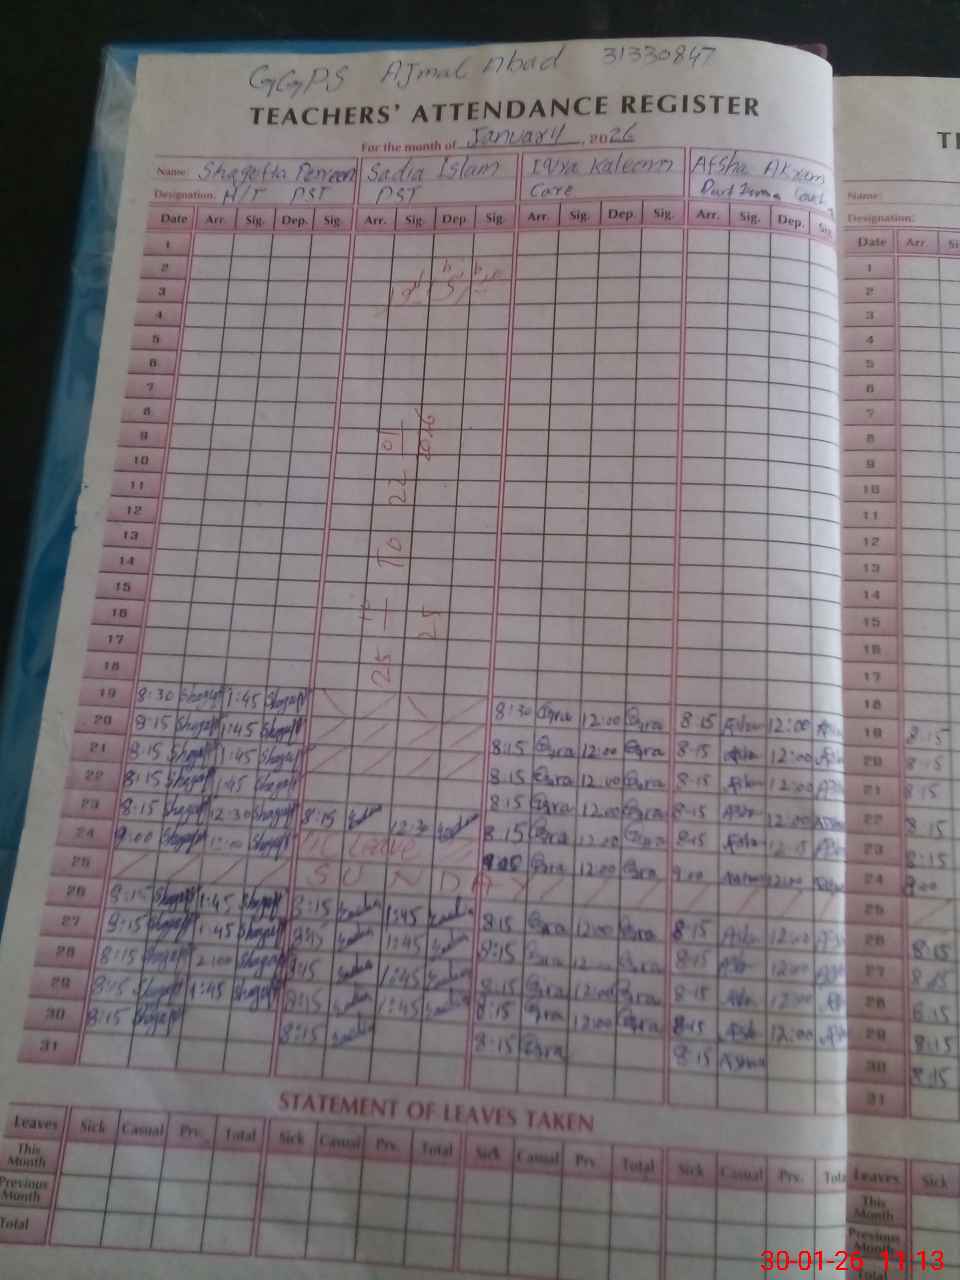 GGPS Ajmal Abad 31330847
TEACHERS' ATTENDANCE REGISTER
For the month of January, 2026
Name: Shagufta Perveen Sadia Islam Iqra Kaleem Afsha Akram
Designation. H/T PST PST Care Part Time
Date Arr. Sig. Dep. Sig. Arr. Sig. Dep. Sig. Arr. Sig. Dep. Sig. Arr. Sig. Dep. Sig.
1
2
3
4
5
6
7
8
9
10
11
12
13
14
15
16
17
18
19 8:30 Shaguf 1:45 Shaguf 8:30 Iqra 12:00 Iqra 8:15 Afsha 12:00 Afsha
20 8:15 Shaguf 1:45 Shaguf 8:15 Iqra 12:00 Iqra 8:15 Afsha 12:00 Afsha
21 8:15 Shaguf 1:45 Shaguf 8:15 Iqra 12:00 Iqra 8:15 Afsha 12:00 Afsha
22 8:15 Shaguf 1:45 Shaguf 8:15 Iqra 12:00 Iqra 8:15 Afsha 12:00 Afsha
23 8:15 Shaguf 12:30 Shaguf 8:15 Sadia 12:30 Sadia 8:15 Iqra 12:00 Iqra 8:15 Afsha Afsha
24 9:00 Shaguf 1:00 Shaguf Leave Iqra 12:00 Iqra 9:00 Afsha 12:00 Afsha
25 SUNDAY
26 8:15 Shaguf 1:45 Shaguf 8:15 Sadia 1:45 Sadia 8:15 Iqra 12:00 Iqra 8:15 Afsha 12:00 Afsha
27 8:15 Shaguf 1:45 Shaguf 8:15 Sadia 1:45 Sadia 8:15 Iqra 12:00 Iqra 8:15 Afsha 12:00
28 8:15 Shaguf 2:00 Shaguf 8:15 Sadia 1:45 Sadia 8:15 Iqra 12:00 Iqra 8:15 Afsha 12:00
29 8:15 Shaguf 1:45 Shaguf 8:15 Sadia 1:45 Sadia 8:15 Iqra 12:00 Iqra 8:15 Afsha 12:00
30 8:15 Shaguf 8:15 Sadia 8:15 Iqra 8:15 Afsha
31
25 TO 22 01 2026
25
STATEMENT OF LEAVES TAKEN
Leaves Sick Casual Prv. Total Sick Casual Prv. Total Sick Casual Prv. Total Sick Casual Prv. Total
This Month
Previous Month
Total
Name:
Designation:
Date Arr.
1
2
3
4
5
6
7
8
9
10
11
12
13
14
15
16
17
18
19 8:15
20 8:15
21 8:15
22 8:15
23 8:15
24 9:00
25
26 8:15
27 8:15
28 8:15
29 8:15
30 8:15
31
Leaves Sick
This Month
Previous Month
30-01-26 11-13